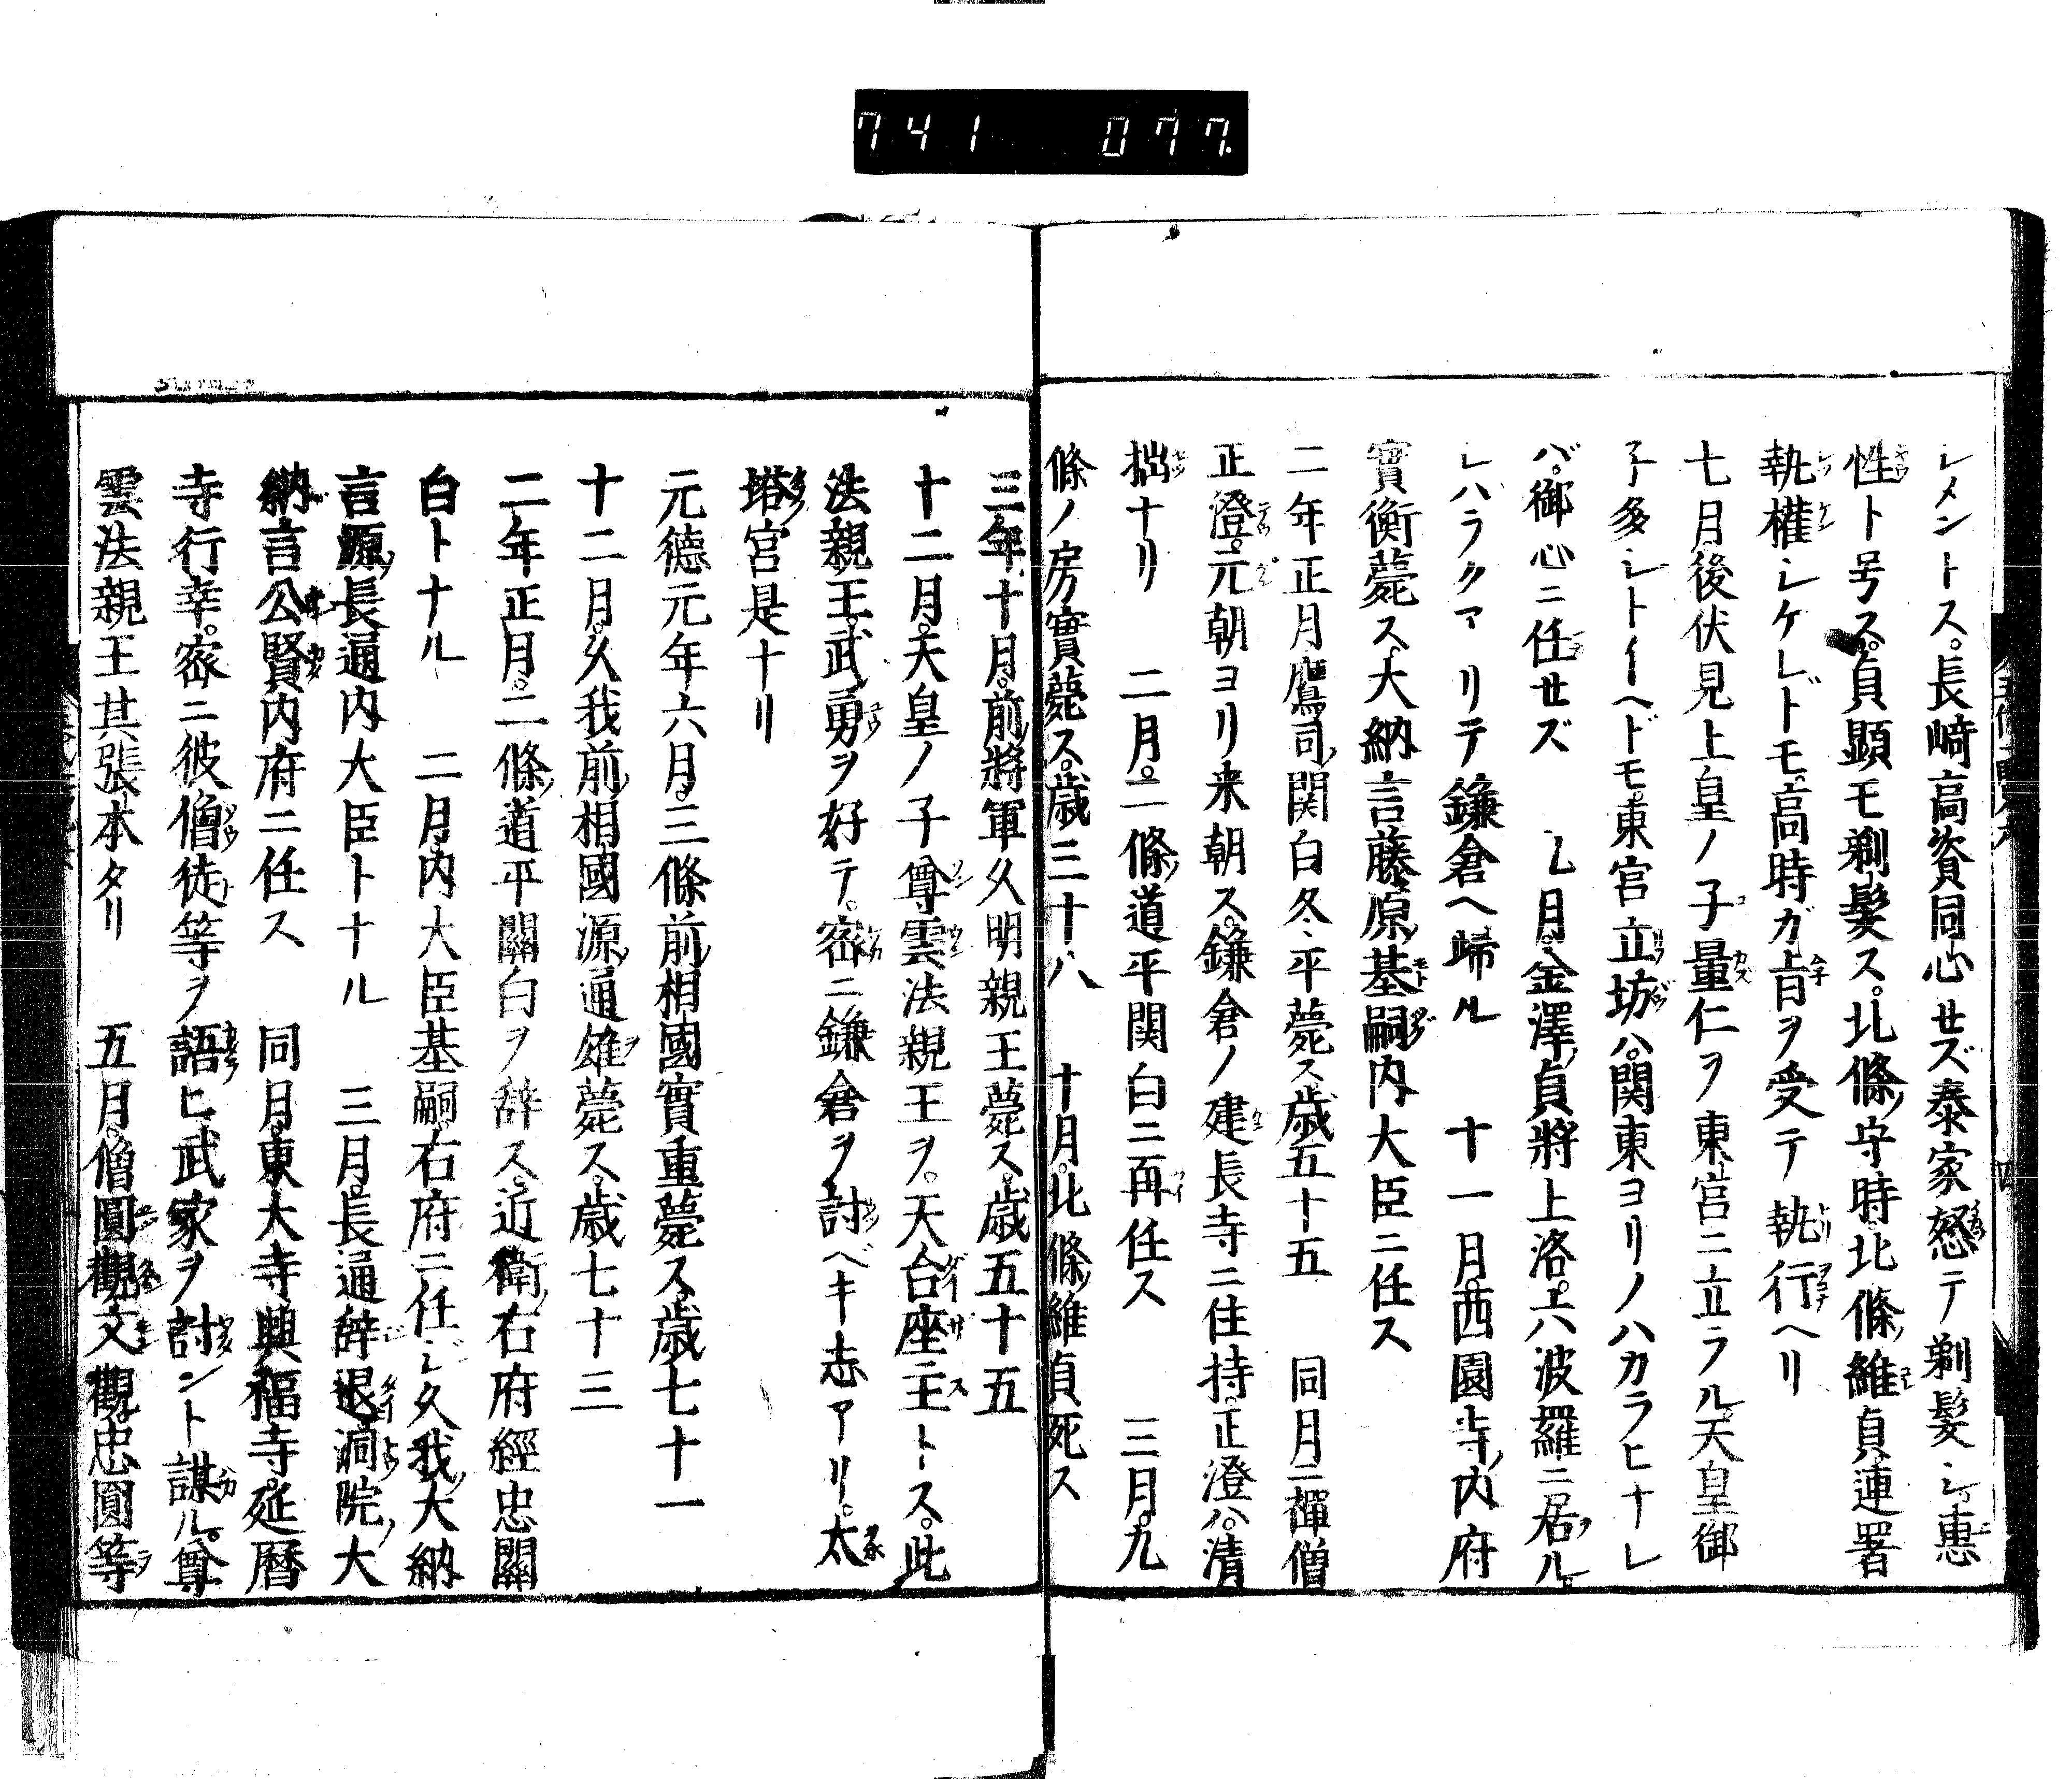 741 077
シメントス。長崎高資同心セズ泰家怒テ剃髪シ惠
性ト号ス。貞顕モ剃髪ス。北條守時北條維貞連署
執權シケレドモ。高時ガ旨ヲ受テ執行ヘリ
七月後伏見上皇ノ子量仁ヲ東宮ニ立ラル。天皇御
子多シトイヘドモ東宮立坊ハ。関東ヨリノハカラヒナレ
バ。御心ニ任セズ 七月。金澤貞將上洛。六波羅ニ居ル。
シハラクアリテ鎌倉ヘ皈ル 十一月。西園寺内府
實衡薨ス。大納言藤原基嗣内大臣ニ任ス
二年正月鷹司関白冬平薨ス。歳五十五 同月二禪僧
正澄。元朝ヨリ来朝ス。鎌倉ノ建長寺ニ住持。正澄ハ。清
拙ナリ 二月。二條道平関白ニ再任ス 三月。九
條ノ房實薨ス。歳三十八 十月。北條維貞死ス
三年十月。前將軍久明親王薨ス。歳五十五
十二月。天皇ノ子尊雲法親王ヲ。天台座主トス。此
法親王。武勇ヲ好テ。密ニ鎌倉ヲ討ベキ志アリ。太
塔宮是ナリ
元德元年六月。三條前相國實重薨ス。歳七十一
十二月。久我前相國源通雄薨ス。歳七十三
二年正月。二條道平關白ヲ辞ス。近衛右府經忠關
白トナル 二月。内大臣基嗣右府ニ任ジ。久我大納
言源長通内大臣トナル 三月。長通辞退洞院大
納言公賢内府ニ任ス 同月。東大寺興福寺。延暦
寺行幸。密ニ彼僧徒等ヲ語ヒ武家ヲ討ント謀ル。尊
雲法親王其張本タリ 五月。僧圓觀文觀忠圓等